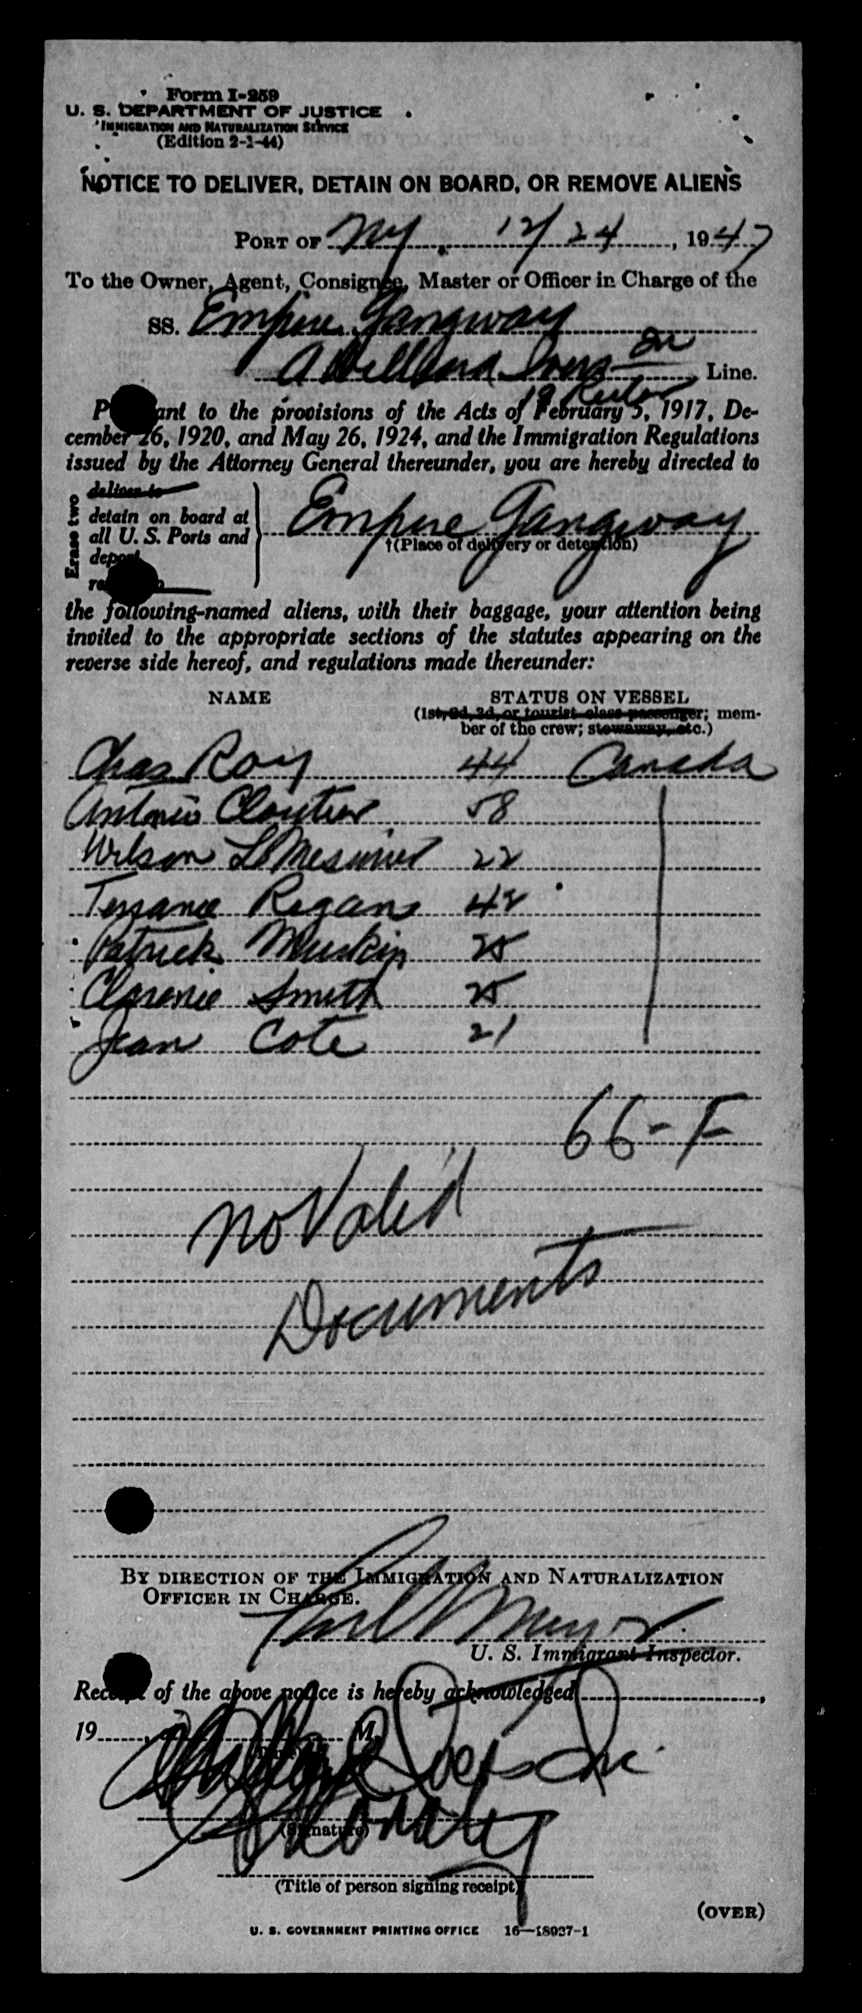 Form I-259
U. S. DEPARTMENT OF JUSTICE
IMMIGRATION AND NATURALIZATION SERVICE
(Edition 2-1-44)
NOTICE TO DELIVER, DETAIN ON BOARD, OR REMOVE ALIENS
PORT OF NY. 12/24, 1947
To the Owner, Agent, Consignee, Master or Officer in Charge of the
SS. Empire Gangway
A Line.
19 Rector
P ant to the provisions of the Acts of February 5, 1917, De-
cember 26, 1920, and May 26, 1924, and the Immigration Regulations
issued by the Attorney General thereunder, you are hereby directed to
Erase two
deliver to
detain on board at
all U. S. Ports and
depor
Empire Gangway
†(Place of delivery or detention)
the following-named aliens, with their baggage, your attention being
invited to the appropriate sections of the statutes appearing on the
reverse side hereof, and regulations made thereunder:
NAME STATUS ON VESSEL
(1st, 2d, 3d, or tourist class passenger; mem-
ber of the crew; stowaway, etc.)
Chas Roy 44 Canada
Antonio Cloutier 58
Wilson LeMesurier 22
Terrance Regan 42
Patrick Muskin 25
Clarence Smith 25
Jean Cote 21
66-F
No Valid
Documents
BY DIRECTION OF THE IMMIGRATION AND NATURALIZATION
OFFICER IN CHARGE.
U. S. Immigrant Inspector.
Receipt of the above notice is hereby acknowledged
19 M
(Signature)
(Title of person signing receipt)
(OVER)
U. S. GOVERNMENT PRINTING OFFICE 16—18927-1